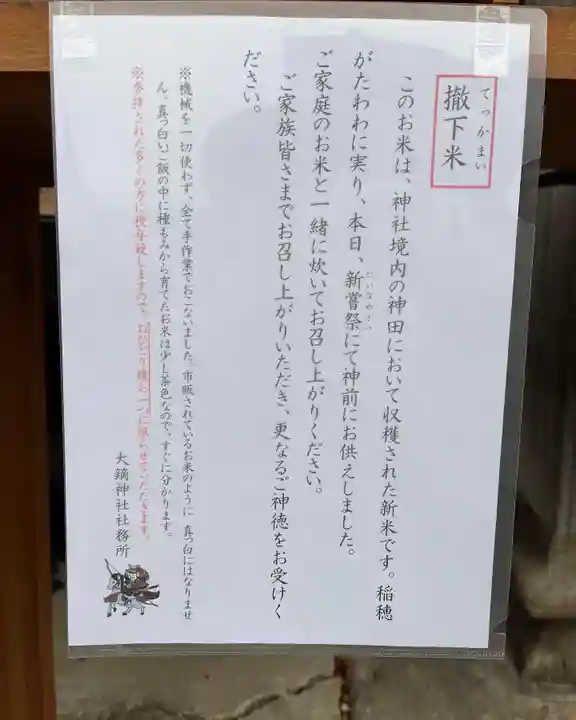 てっかまい
撤下米
このお米は、神社境内の神田において収穫された新米です。稲穂
がたわわに実り、本日、新嘗祭にて神前にお供えしました。
にいなめさい
ご家庭のお米と一緒に炊いてお召し上がりください。
ご家族皆さまでお召し上がりいただき、更なるご神徳をお受けく
ださい。
※機械を一切使わず、全て手作業でおこないました。市販されているお米のように 真っ白にはなりませ
ん。真っ白いご飯の中に種もみから育てたお米は少し茶色なので、すぐに分かります。
※参拝された多くの方に授与致しますので、お一人様お一つに限らせていただきます。
大鏑神社社務所